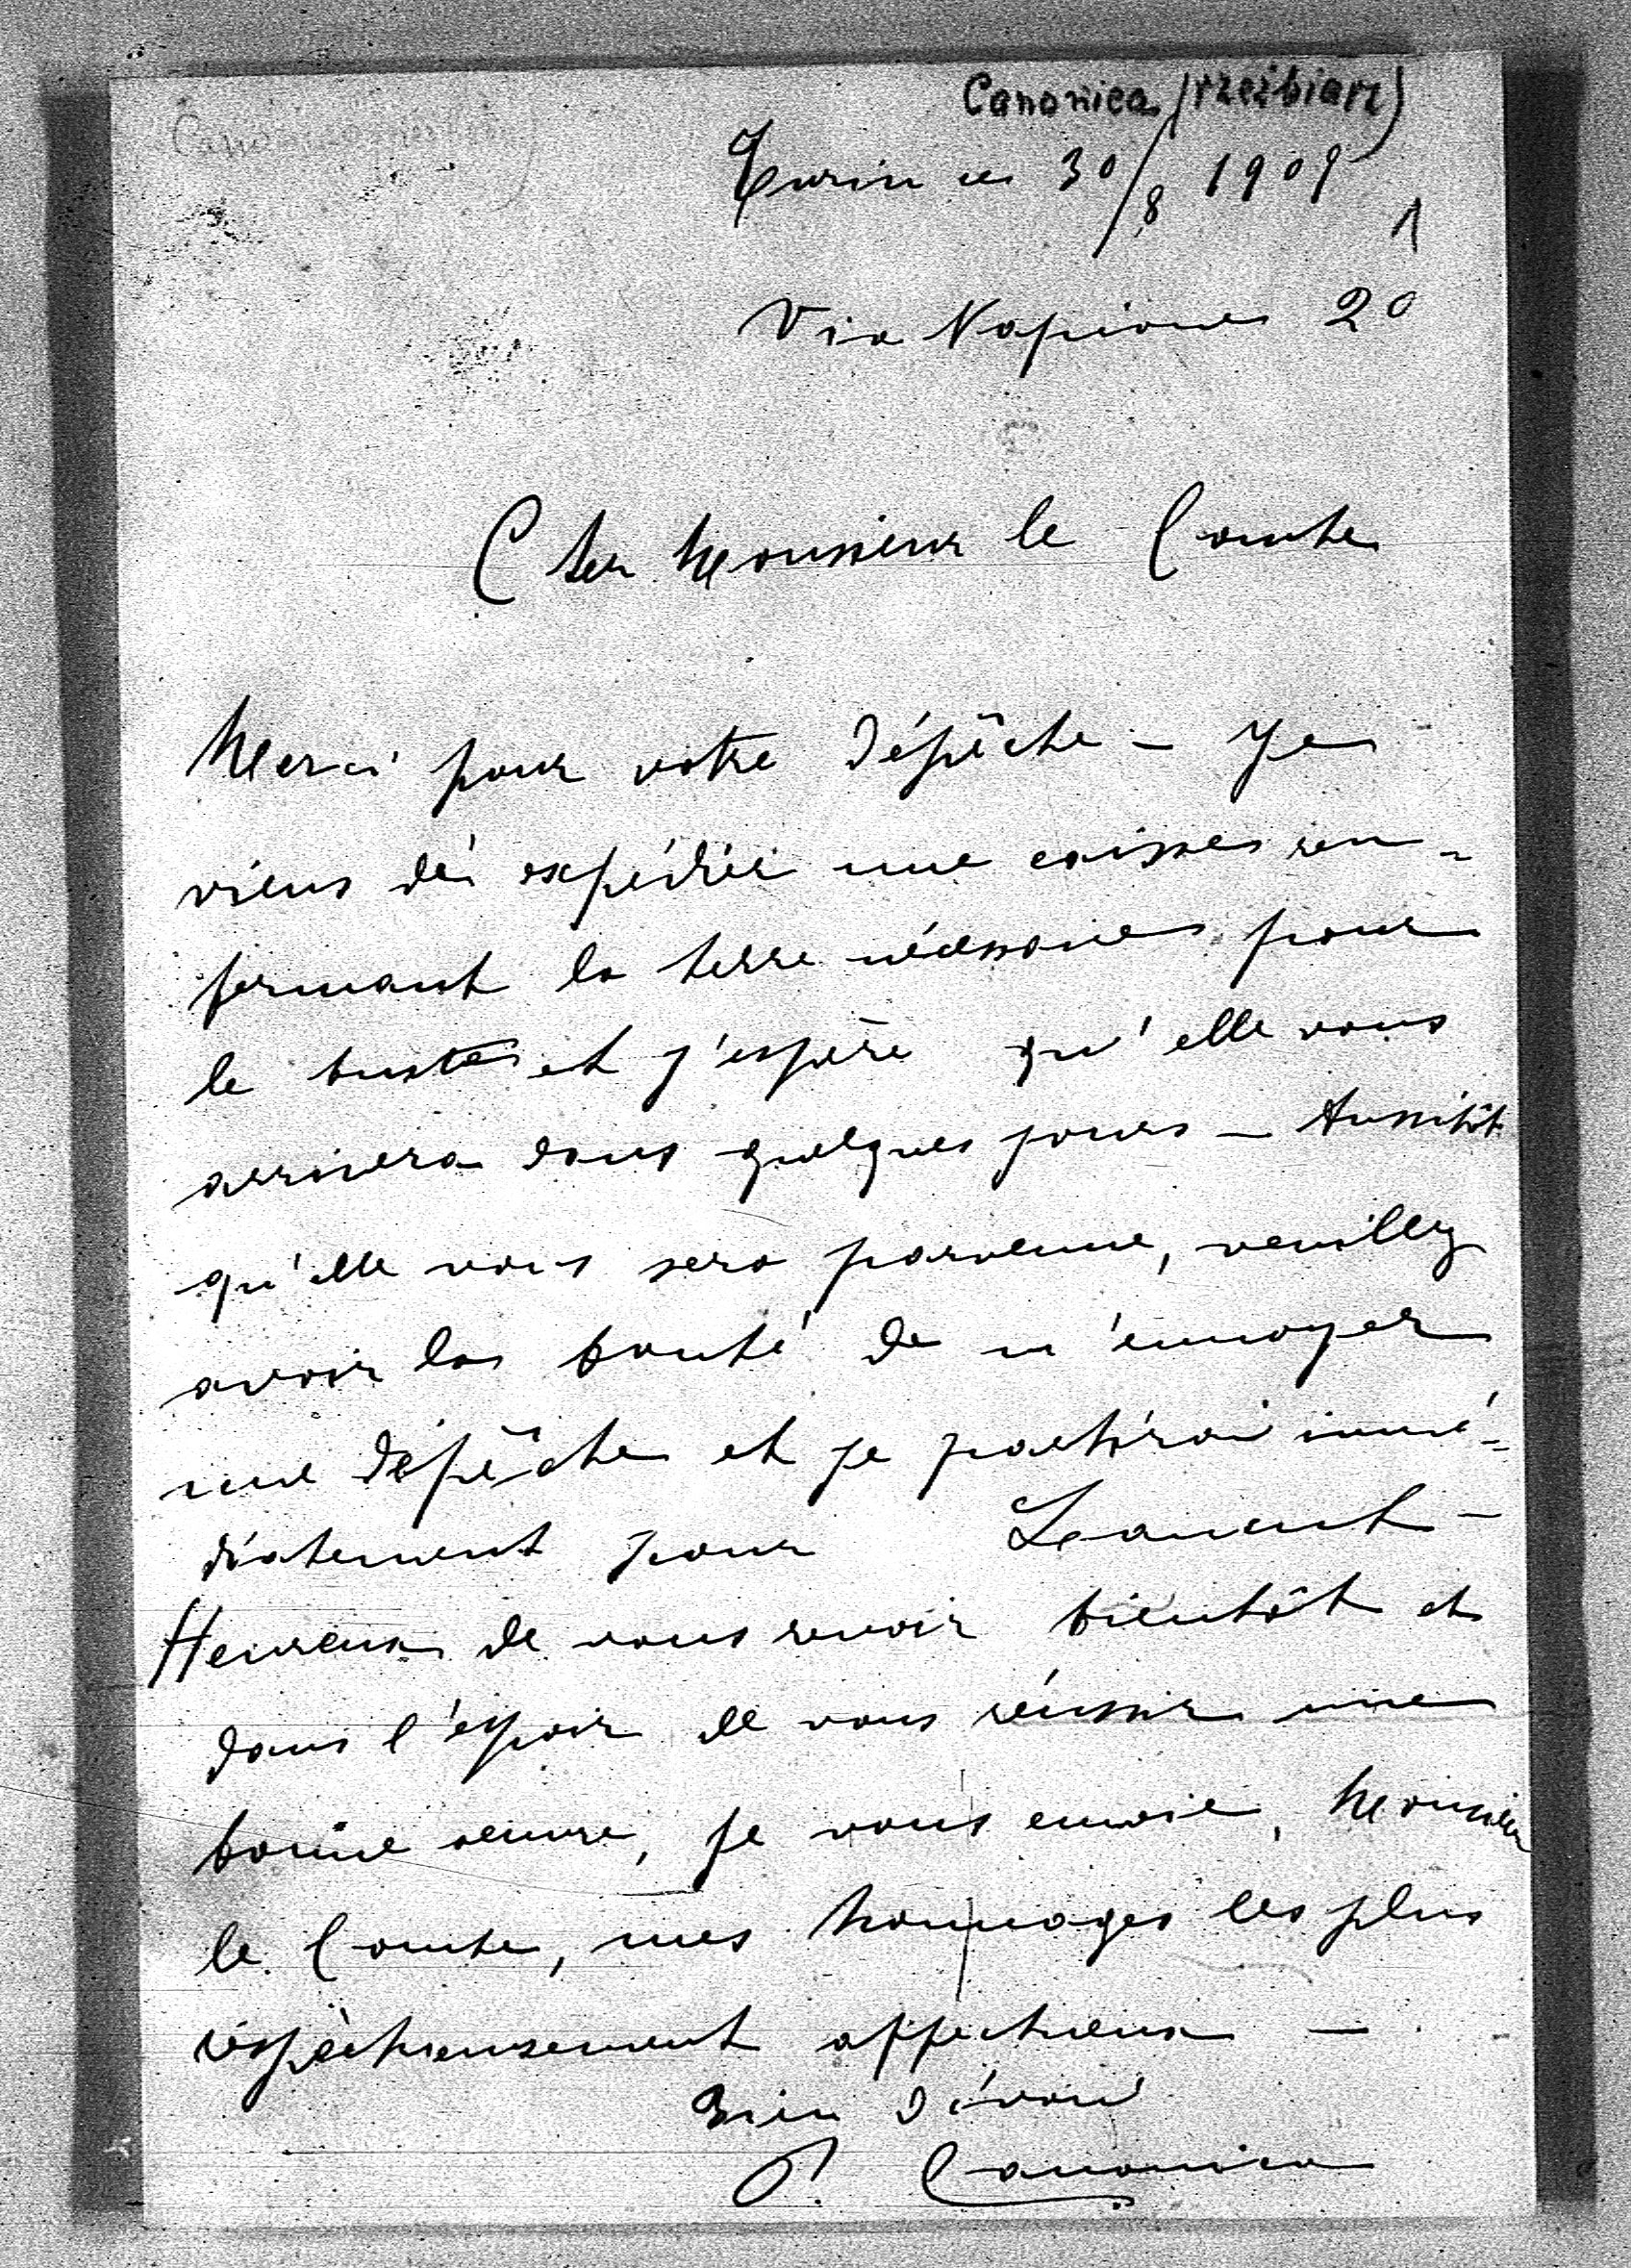 Canonica (rzeźbiarz)
Turin ce 30/8 1909
1
Via Napione 20
Cher Monsieur le Comte
Merci pour votre dépêche – Je
viens de expédier une caisse ren-
fermant la terre nécessaire pour
le buste et j'espère qu'elle vous
arrivera dans quelques jours – Aussitôt
qu'elle vous sera parvenue, veuillez
avoir la bonté de m'envoyer
une dépêche et je partirai immé-
diatement pour Lancut –
Heureux de vous revoir bientôt et
dans l'espoir de vous réussir une
bonne oeuvre, je vous envoie, Monsieur
le Comte, mes hommages les plus
respectueusement affectueux –
Bien dévoué
P. Canonica